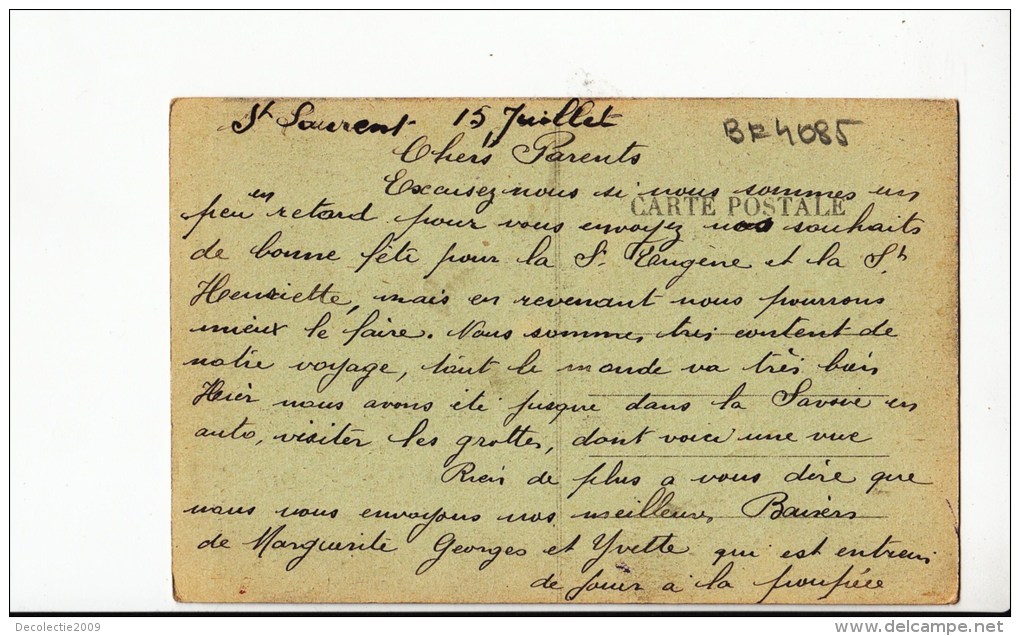 St Laurent 15 Juillet
BF4085
Chers Parents
Excusez nous si nous sommes un
peu en retard pour vous envoyez nos souhaits
CARTE POSTALE
de bonne fête pour la St. Eugène et la St
Henriette, mais en revenant nous pourrons
mieux le faire. Nous sommes très content de
notre voyage, tout le monde va très bien
Hier nous avons été jusque dans la Savoie en
auto, visiter les grottes, dont voici une vue
Rien de plus a vous dire que
nous vous envoyons nos meilleurs Baisers
de Marguerite Georges et Yvette qui est entrein
de jouer a la poupée
Decolectie2009
www.delcampe.net